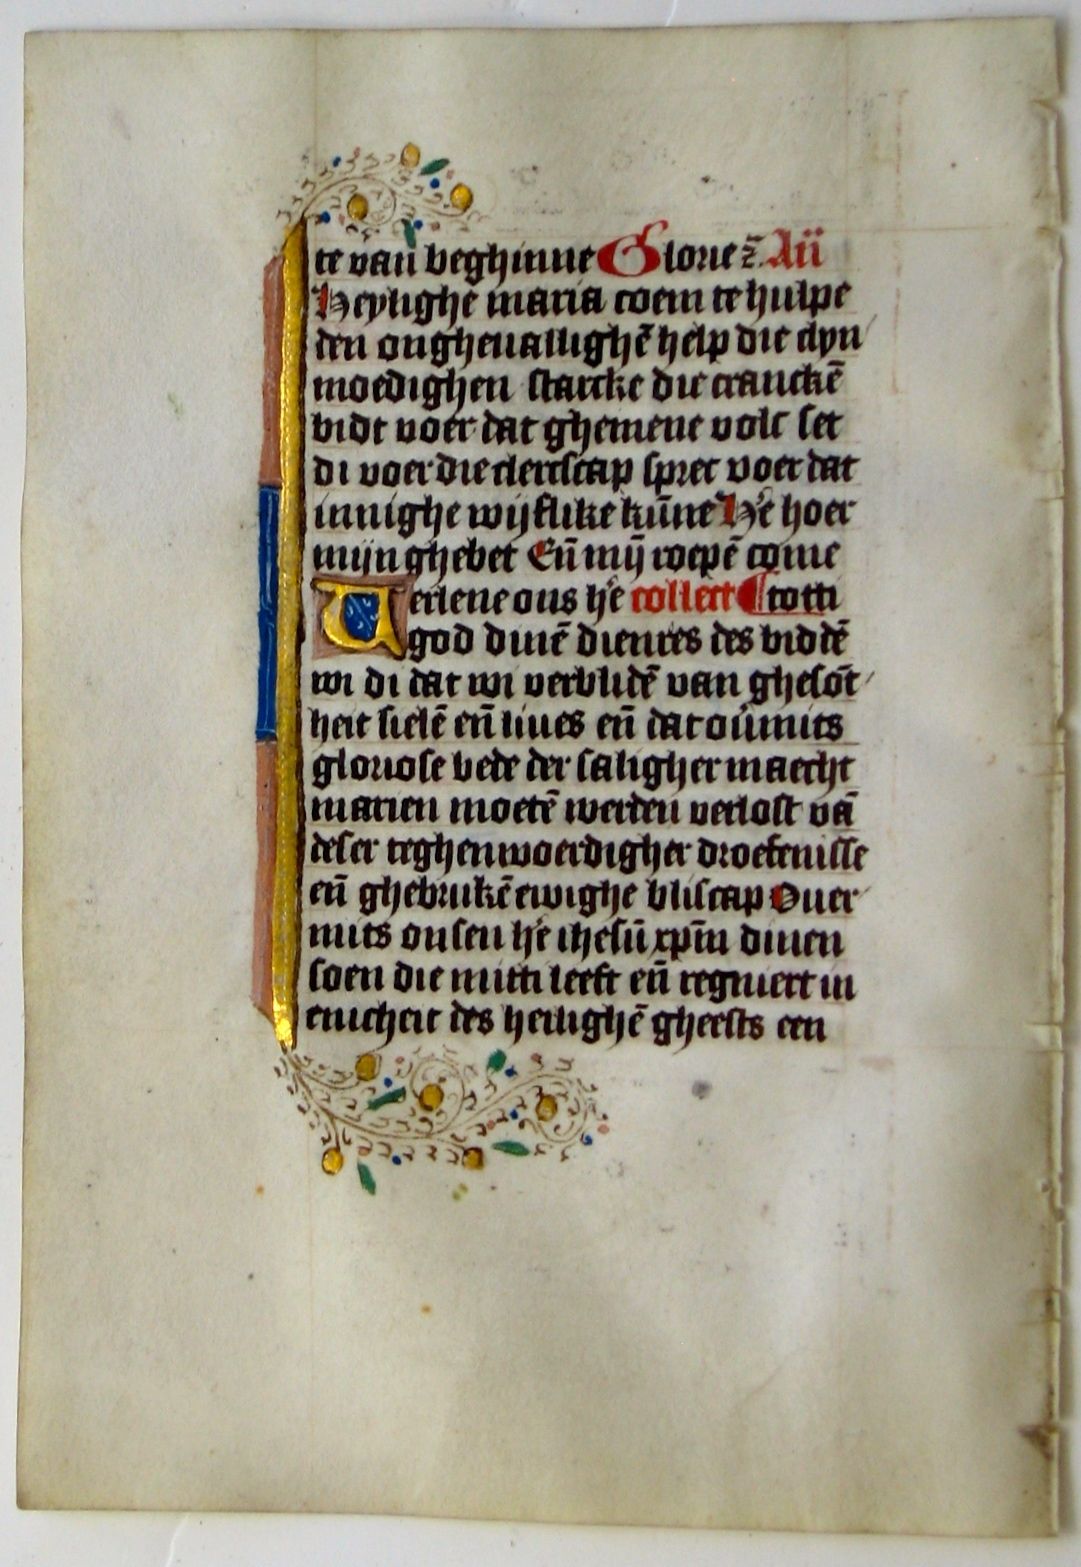 te van beghinne Glorie z̄. Añ
Heylighe maria coem te hulpe
den ongheuallighē help die clyn
moedighen starcke die cranckē
bidt voer dat ghemene volc set
di voer die clercscap sprec voer dat
innighe wijflike kūne H'e hoer
mijn ghebet Eñ mij̄ roepē come
Verlene ons h'e collect totti
god dinē dienres des biddē
wi di dat wi verblidē van ghesōt
heit sielē eñ liues eñ dat ouͥmits
gloriose bede der saligher maecht
marien moetē werden verlost vā
deser teghenwoerdigher droefenisse
eñ ghebrukē ewighe bliscap Ouer
mits onsen h'e ihesū xp̄m dinen
soen die mitti leeft eñ regniert in
enicheit des heilighē gheests een